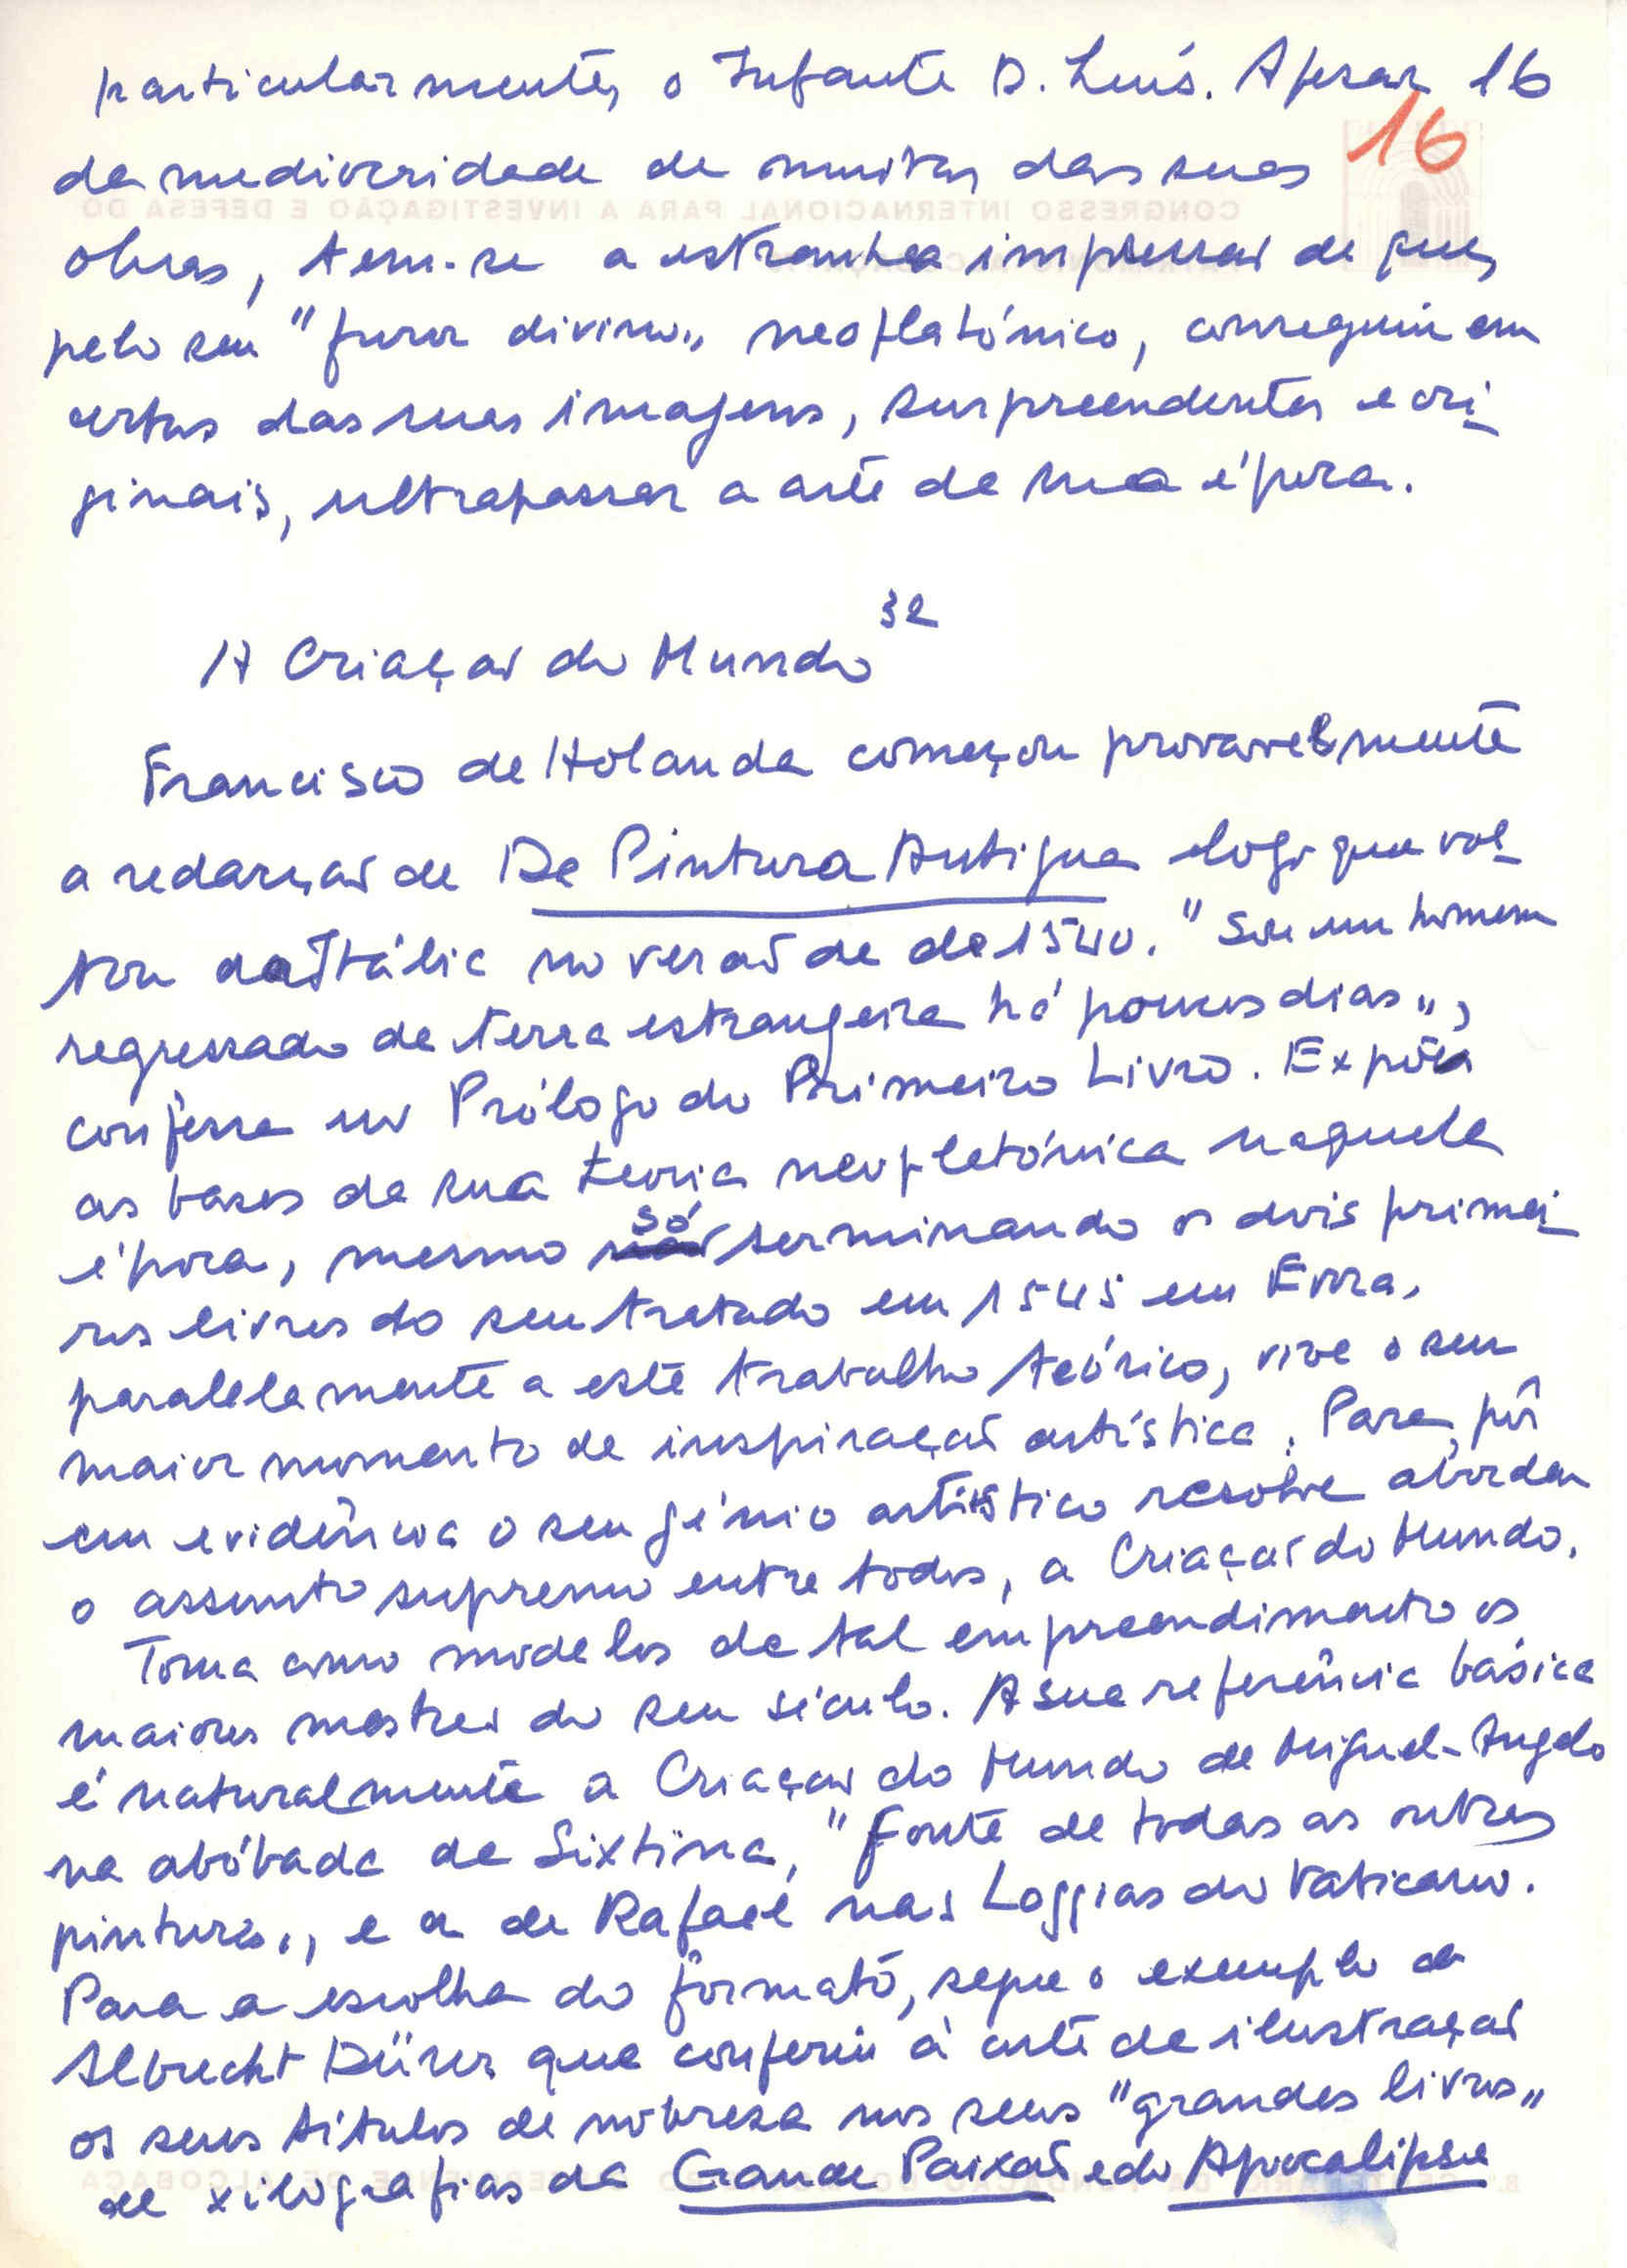 particularmente, o Infante D. Luís. Apesar 16
16
da mediocridade de muitas das suas
obras, tem-se a estranha impressão de que,
pelo seu "furor divino" neoplatónico, conseguiu em
certas das suas imagens, surpreendentes e ori-
ginais, ultrapassar a arte da sua época.
A Criação do Mundo 32
Francisco de Holanda começou provavelmente
a redacção de Da Pintura Antigua logo que vol-
tou da Itália no verão de de 1540. "Sou um homem
regressado de terra estrangeira há poucos dias",
confessa no Prólogo do Primeiro Livro. Expõe
as bases da sua teoria neoplatónica naquela
época, mesmo só terminando os dois primei-
ros livros do seu tratado em 1545 em Évora.
paralelamente a este trabalho teórico, vive o seu
maior momento de inspiração artística. Para pôr
em evidência o seu génio artístico resolve abordar
o assunto supremo entre todos, a Criação do Mundo.
Toma como modelos de tal empreendimento os
maiores mestres do seu século. A sua referência básica
é naturalmente a Criação do Mundo de Miguel-Angelo
na abóbada da Sixtina, "fonte de todas as outras
pinturas", e a de Rafael nas Loggias do Vaticano.
Para a escolha do formato, segue o exemplo de
Albrecht Dürer que conferiu à arte da ilustração
os seus títulos de nobreza nos seus "grandes livros"
de xilografias da Grande Paixão e do Apocalipse